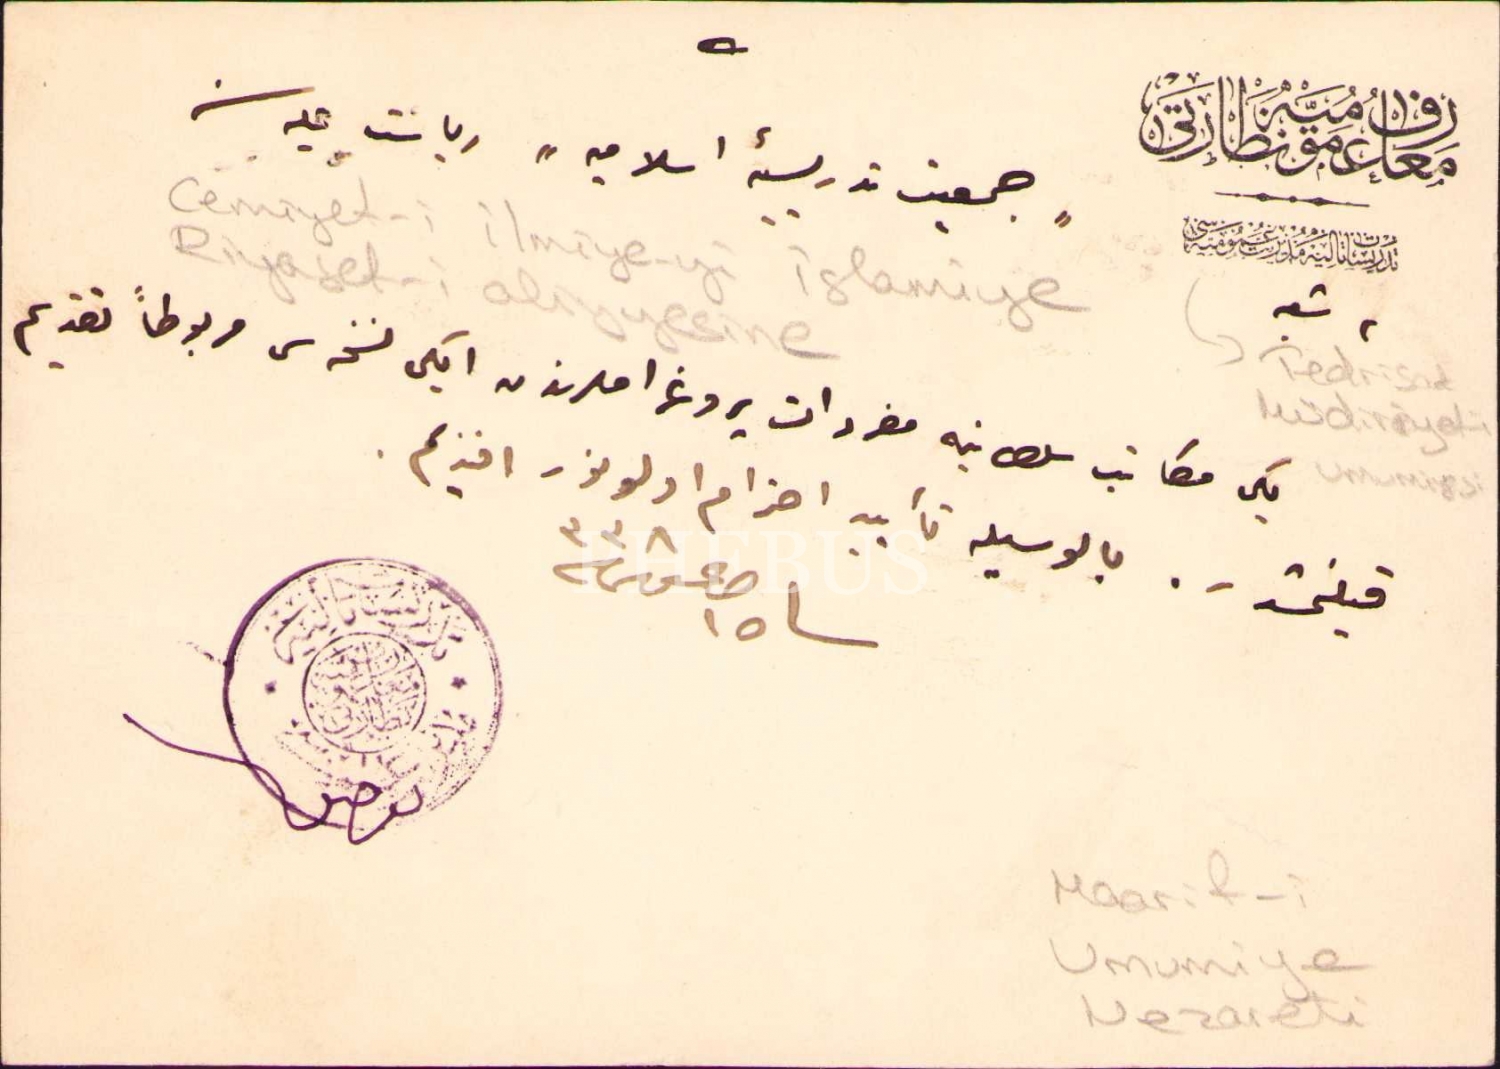 معارف عمومیه نظارتی
تدریسات تالیه مدیریت عمومیه سی
شعبه
" جمعیت تدریسیهٔ اسلامیه " ریاست علیه سنه
Cemiyet-i ilmiye-yi islamiye
Riyaset-i aliyyesine
Tedrisat
Müdüriyet-i
umumiyesi
یکی مکاتب سلطانیه مفردات پروغراملرندن ایکی نسخه سی مربوطاً تقدیم
قیلنمشدر . بالوسیله تأیید احترام اولونور افندیم .
٣٣٨
١٥
PHEBUS
Maarif-i
Umumiye
Nezareti